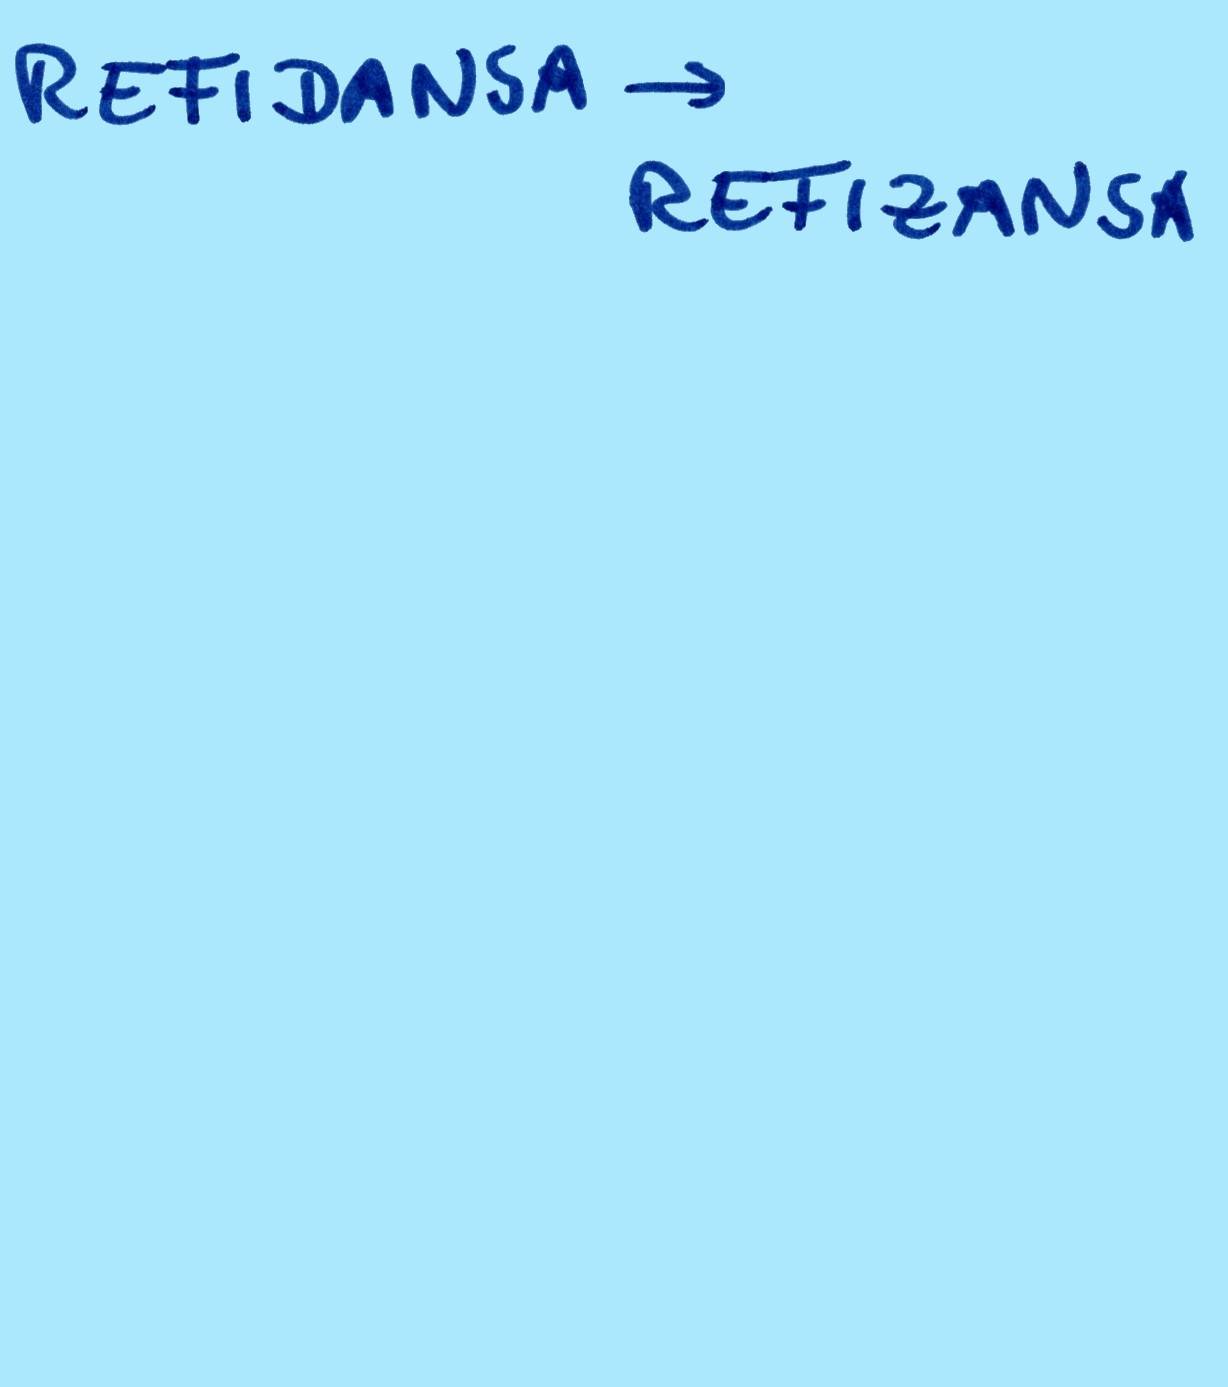 REFIDANSA →
REFIZANSA